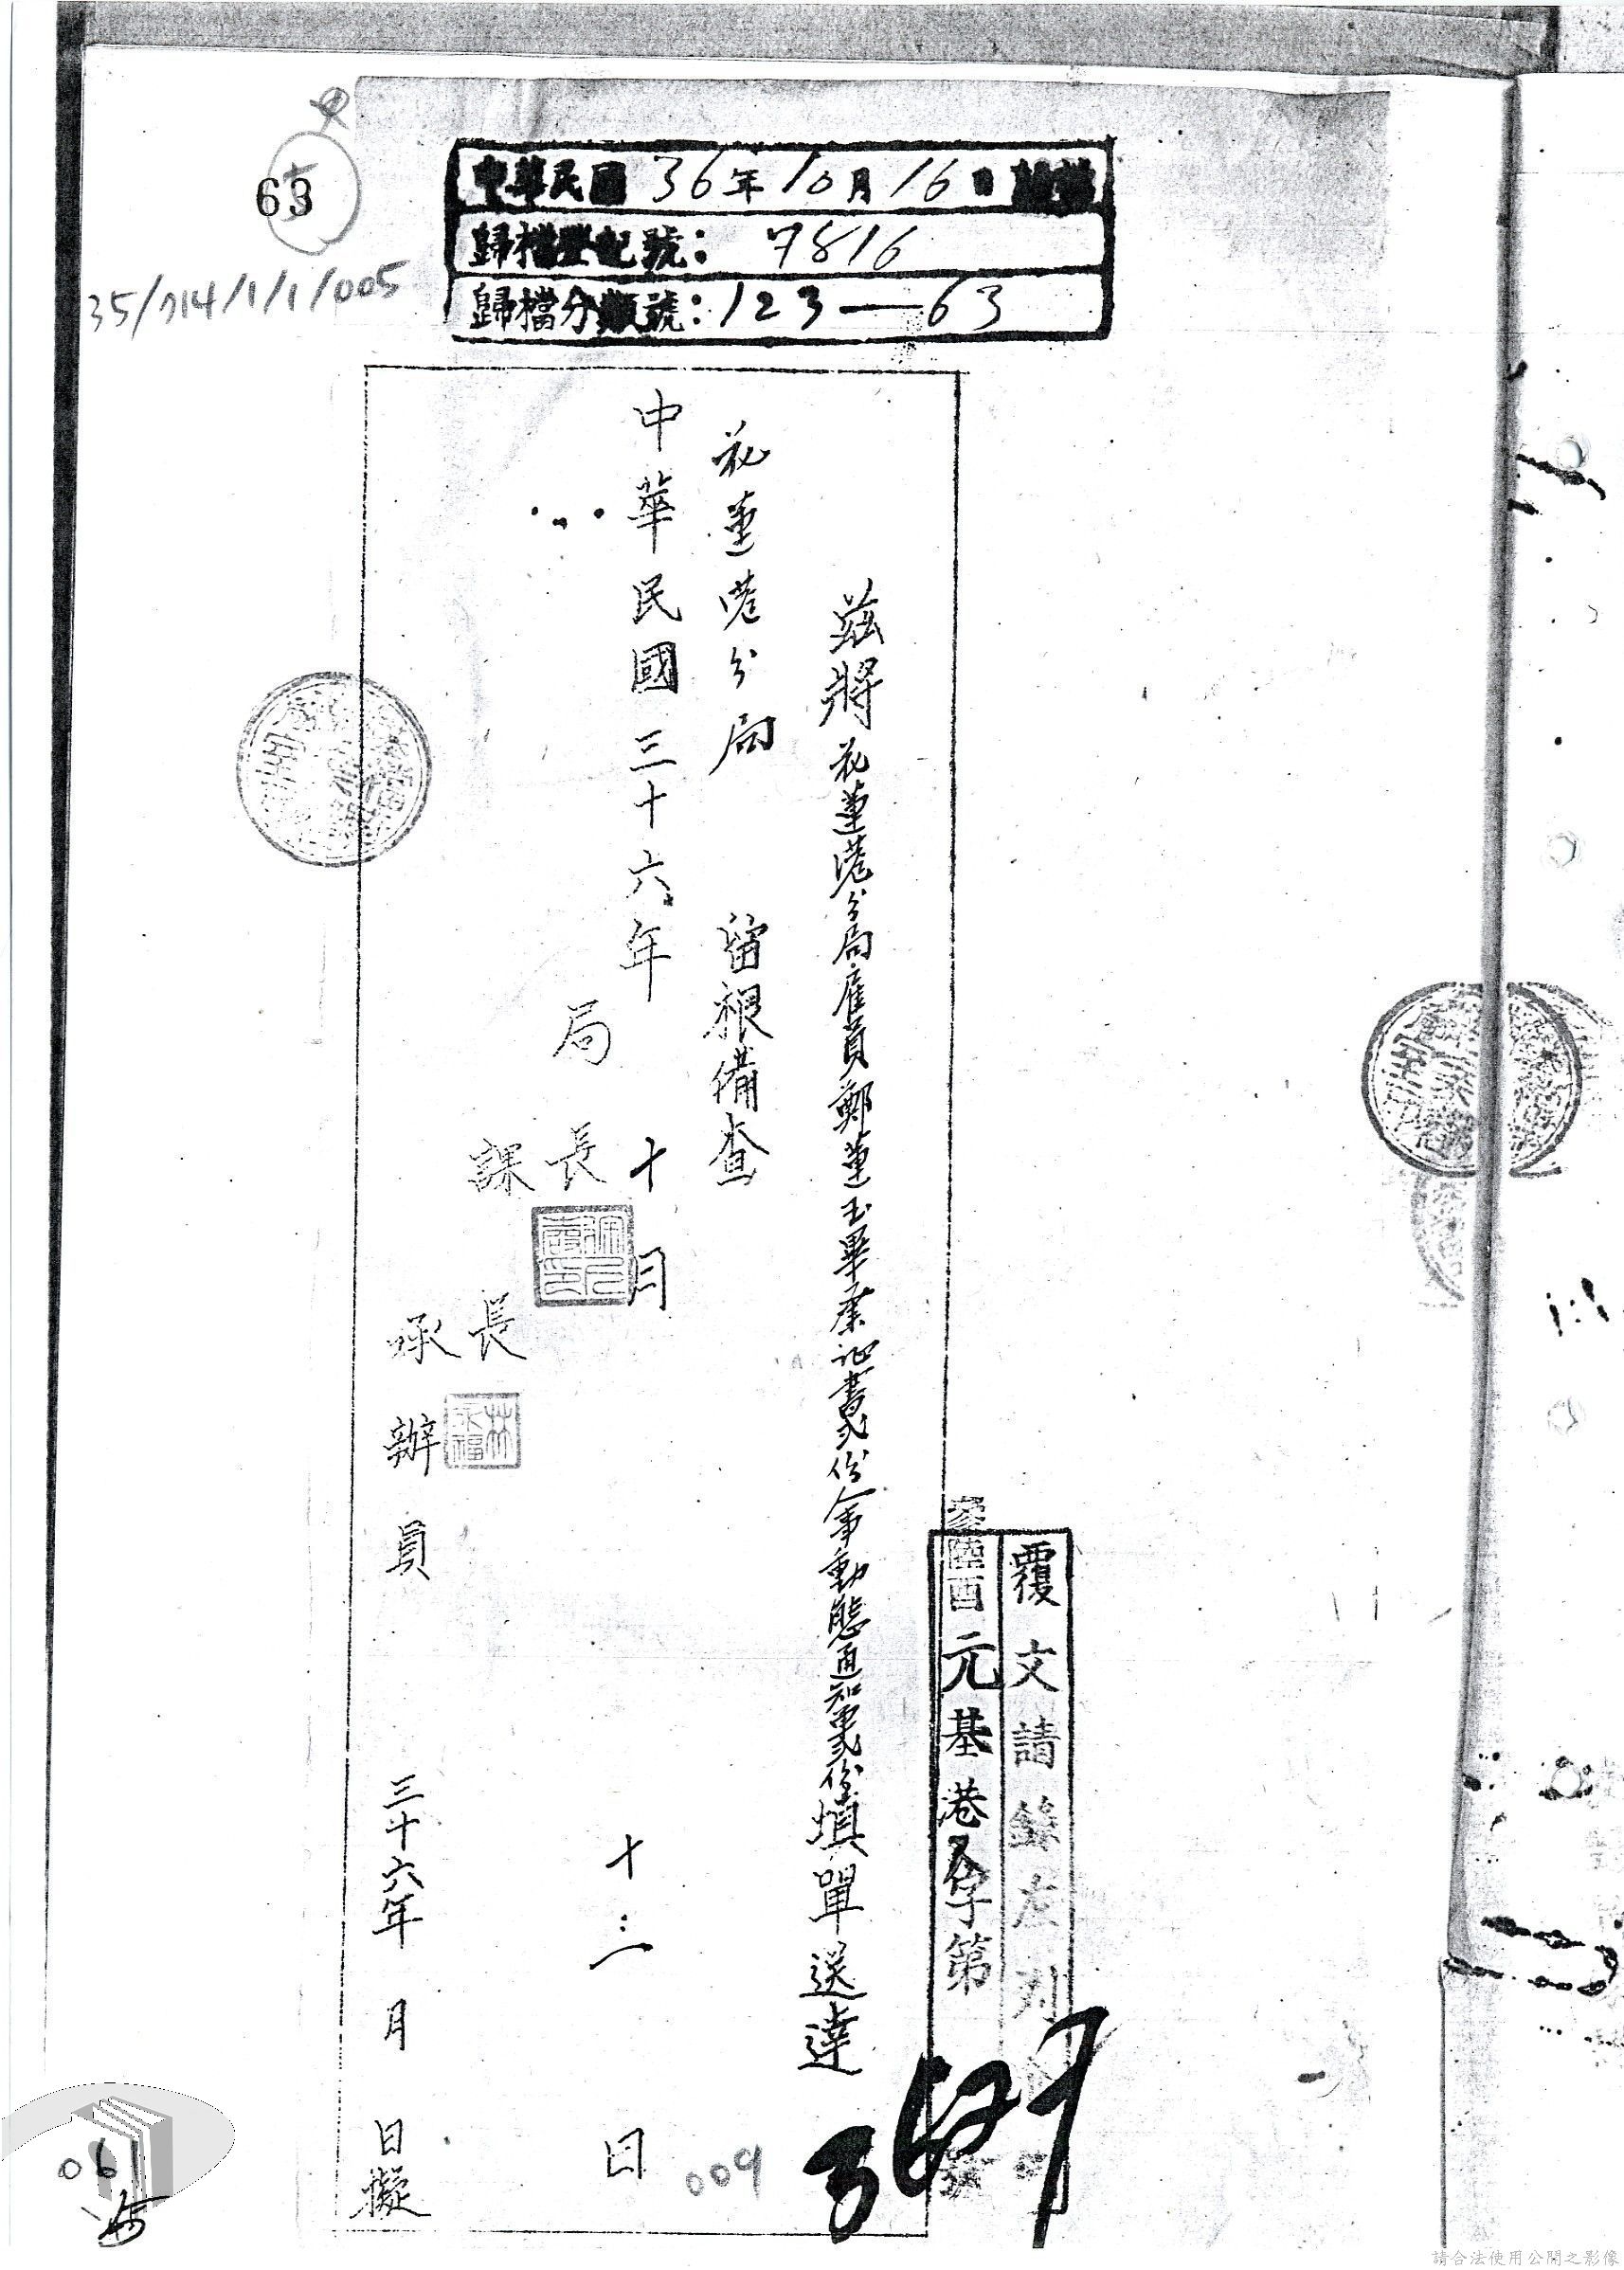 中華民國36年10月16日歸檔
歸檔登記號：7816
歸檔分類號：123—63
63
35/714/1/1/005
覆文請錄左列
參陸酉元基港人字第 號
3627
茲將花蓮港分局雇員鄭蓮玉畢業証書貳份人事動態通知書貳份填單送達
花蓮港分局 留根備查
中華民國三十六年十月十三日
局長
課長
林永福
承辦員 三十六年 月 日擬
009
061
請合法使用公開之影像